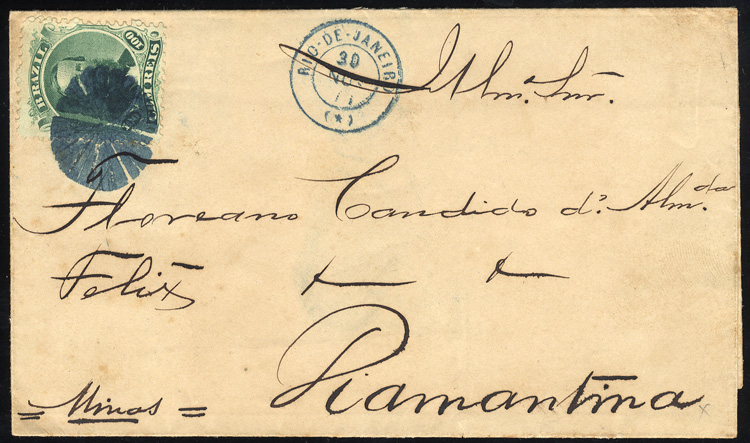 BRAZIL 100 CEM REIS
RIO-DE-JANEIRO
30
NOV
77
(*)
Illmo. Snr.
Floreano Candido d'. Alm.da
Felix
Diamantina
= Minas =